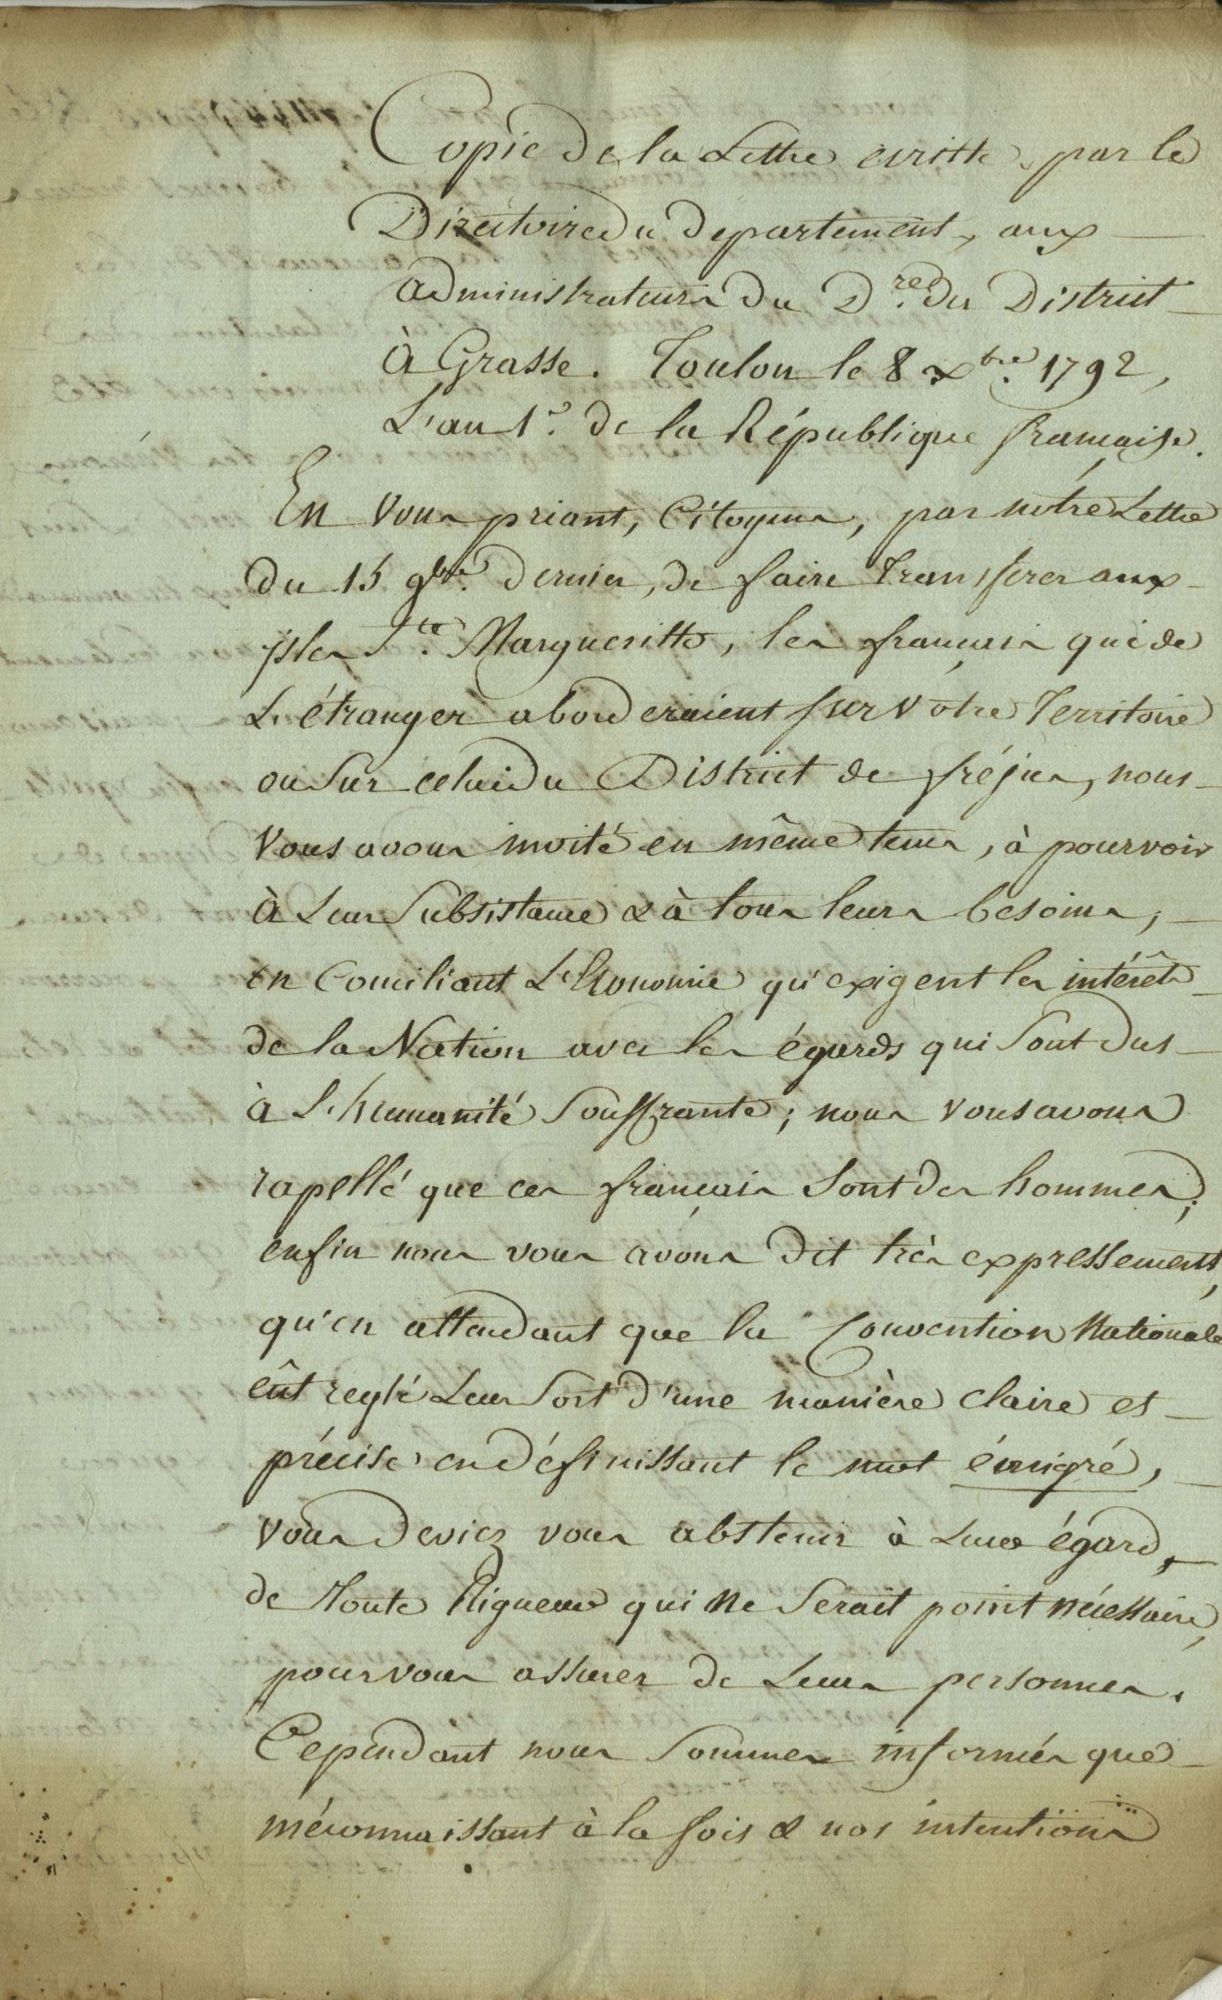 Copie de la Lettre ecritte par le
Directoire du departement, aux
administrateurs du D.re du District
à Grasse. Toulon le 8 xbre. 1792,
L'an 1.er de la République française.
En vous priant, Citoyens, par nôtre Lettre
du 15 9bre. dernier, de faire transferer aux
isles Ste. Margueritte, les français qui de
L'étranger aborderaient sur vôtre Territoire
ou sur celui du District de fréjus, nous
vous avons invité en même tems, à pourvoir
à Leur Subsistance & à tous leurs besoins,
en Conciliant L'Economie qu'exigent les intérêts
de la Nation avec les égards qui Sont dus
à L'humanité Souffrante; nous vous avons
rapellé que ces français Sont des hommes;
enfin nous vous avons dit très expressement,
qu'en attendant que la Convention Nationale
eût reglé Leur Sort d'une manière claire et
précise en définissant le mot émigré,
vous deviez vous abstenir à Leur égard,
de toute Rigueur qui ne Serait point nécessaire,
pour vous assurer de Leurs personnes.
Cependant nous Sommes informés que
méconnaissant à la fois & nos intentions